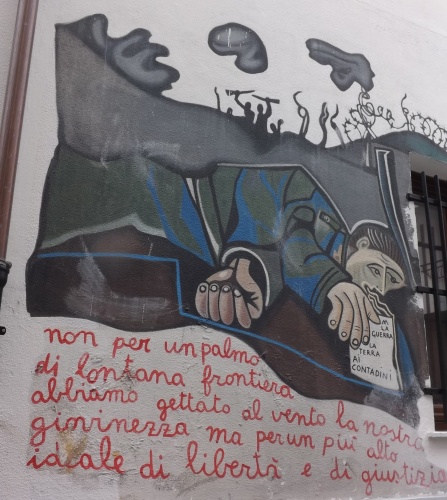 M
LA
GUERRA
LA
TERRA
AI
CONTADINI
non per un palmo
di lontana frontiera
abbiamo gettato al vento la nostra
giovinezza ma per un più alto
ideale di libertà e di giustizia